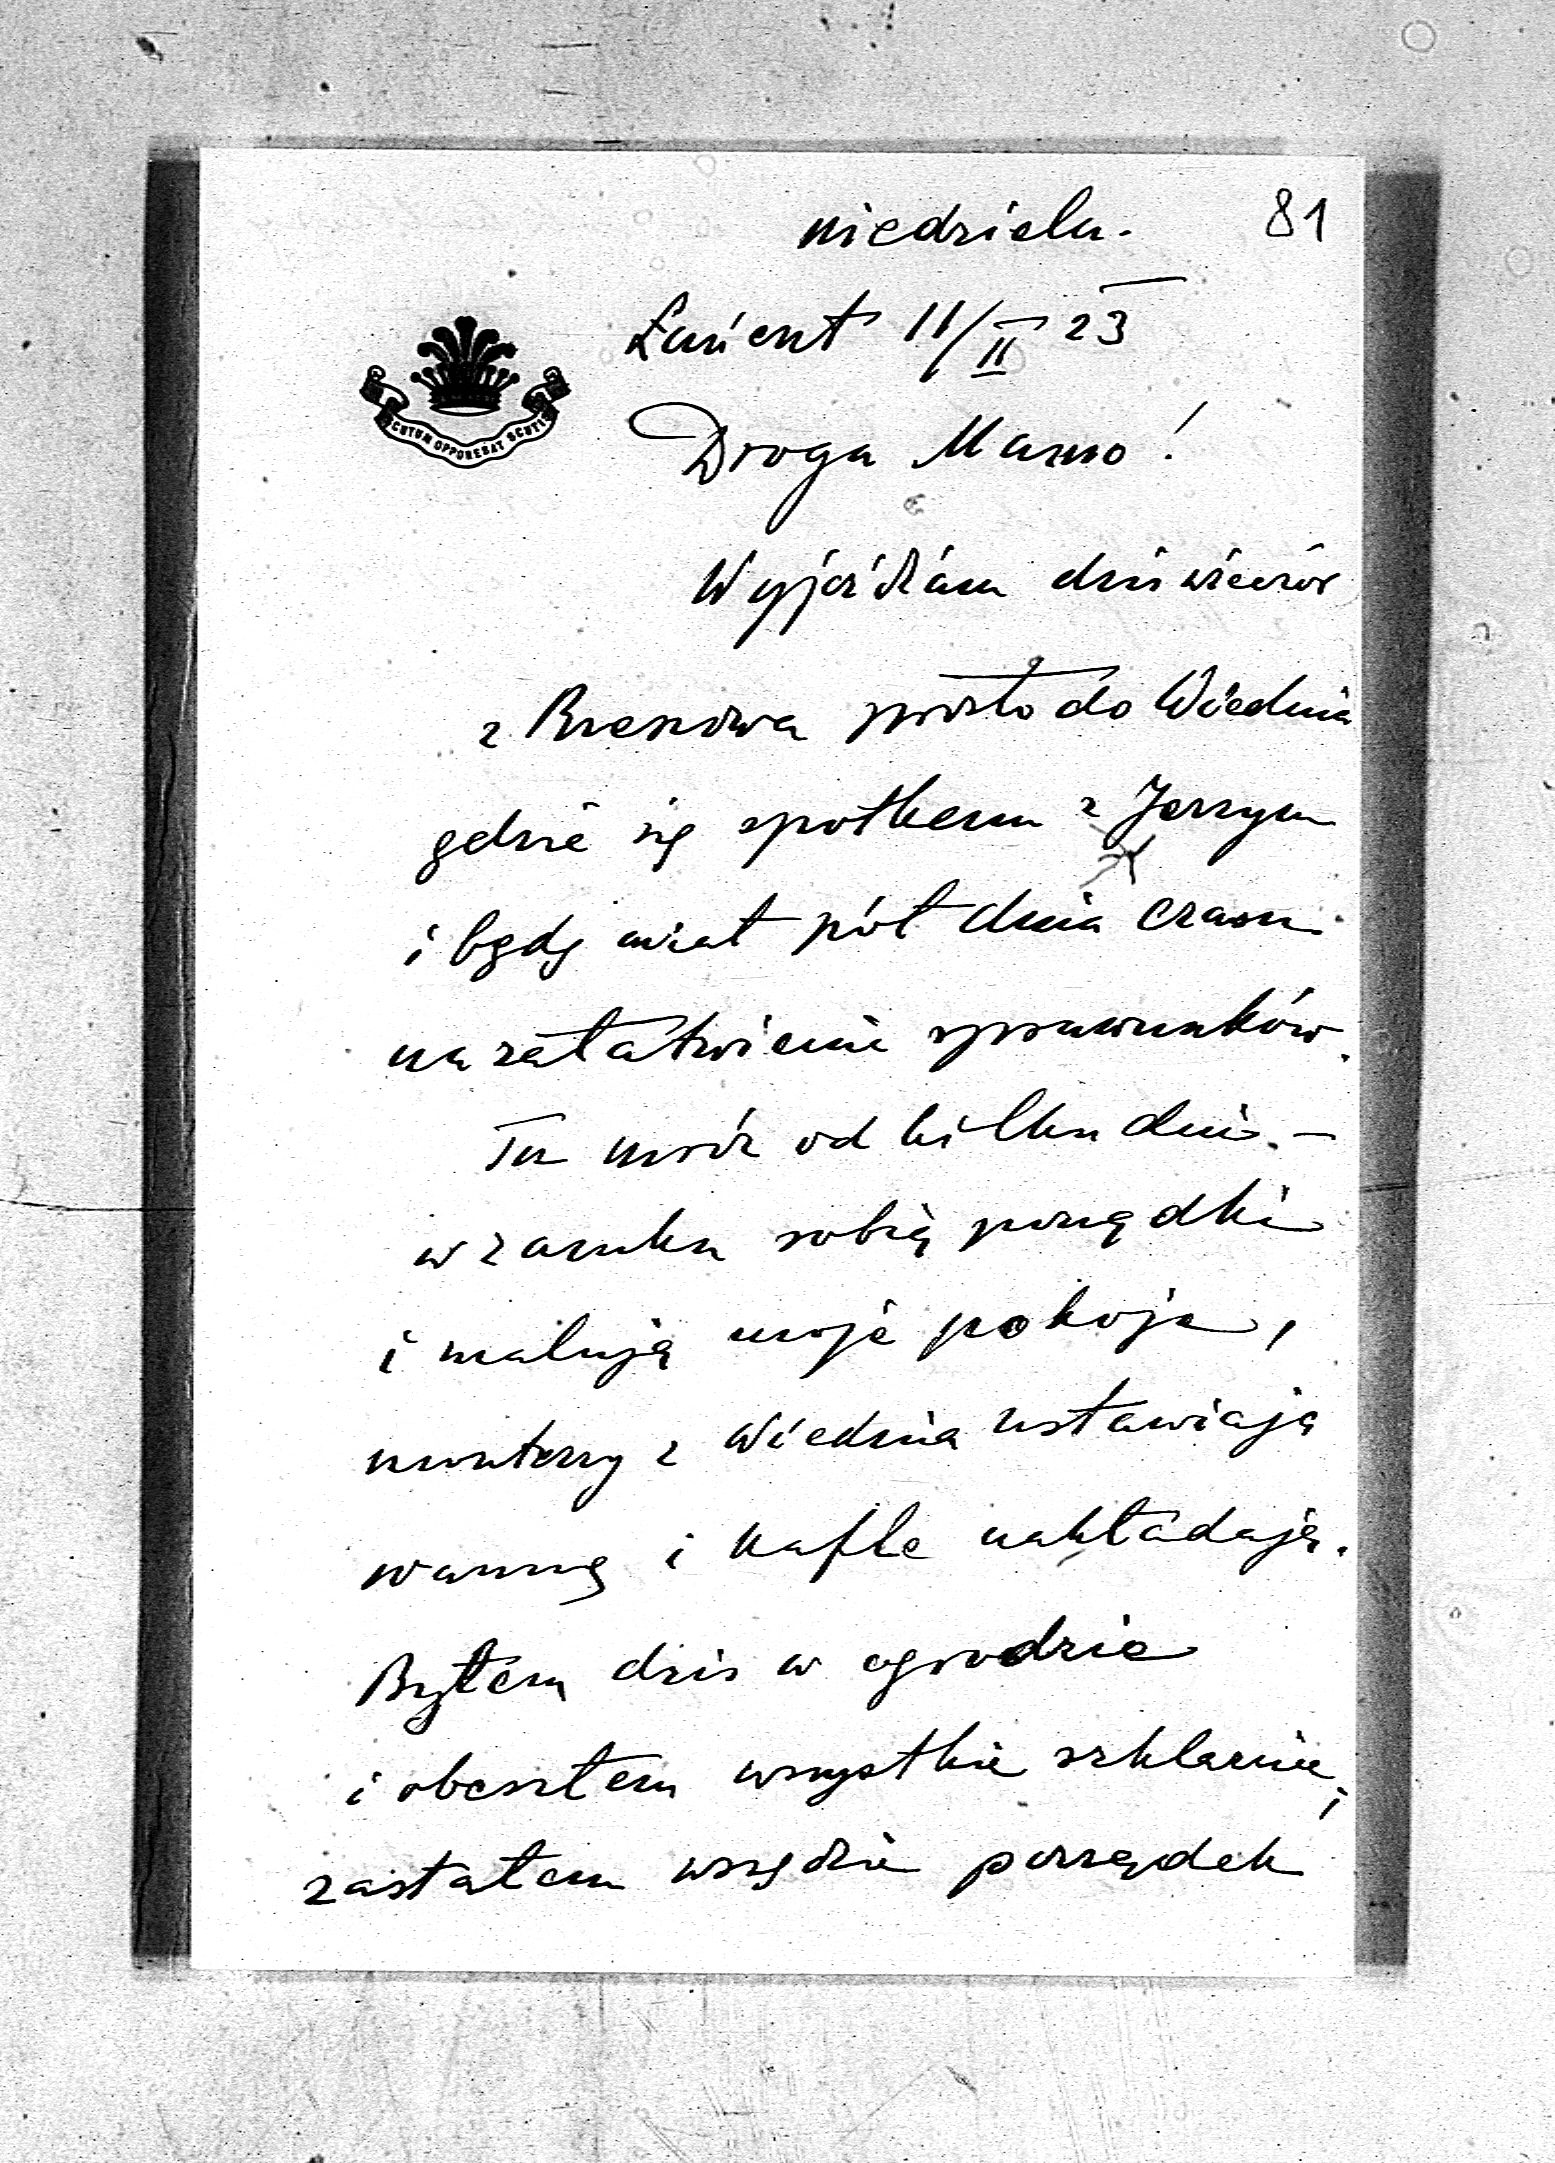 niedziela. 81
Łańcut 11/II 23
SCUTUM OPPONEBAT SCUTIS
Droga Mamo!
Wyjeżdżam dziś wieczór
z Rzeszowa prosto do Wiednia
gdzie się spotkam z Jerzym
i będę miał pół dnia czasu
na załatwienie sprawunków.
Tu mróz od kilku dni. –
w zamku robią porządki
i malują moje pokoje,
monterzy z Wiednia ustawiają
wannę i kafle nakładają.
Byłem dziś w ogrodzie
i obeszłem wszystkie szklarnie,
zastałem wszędzie porządek